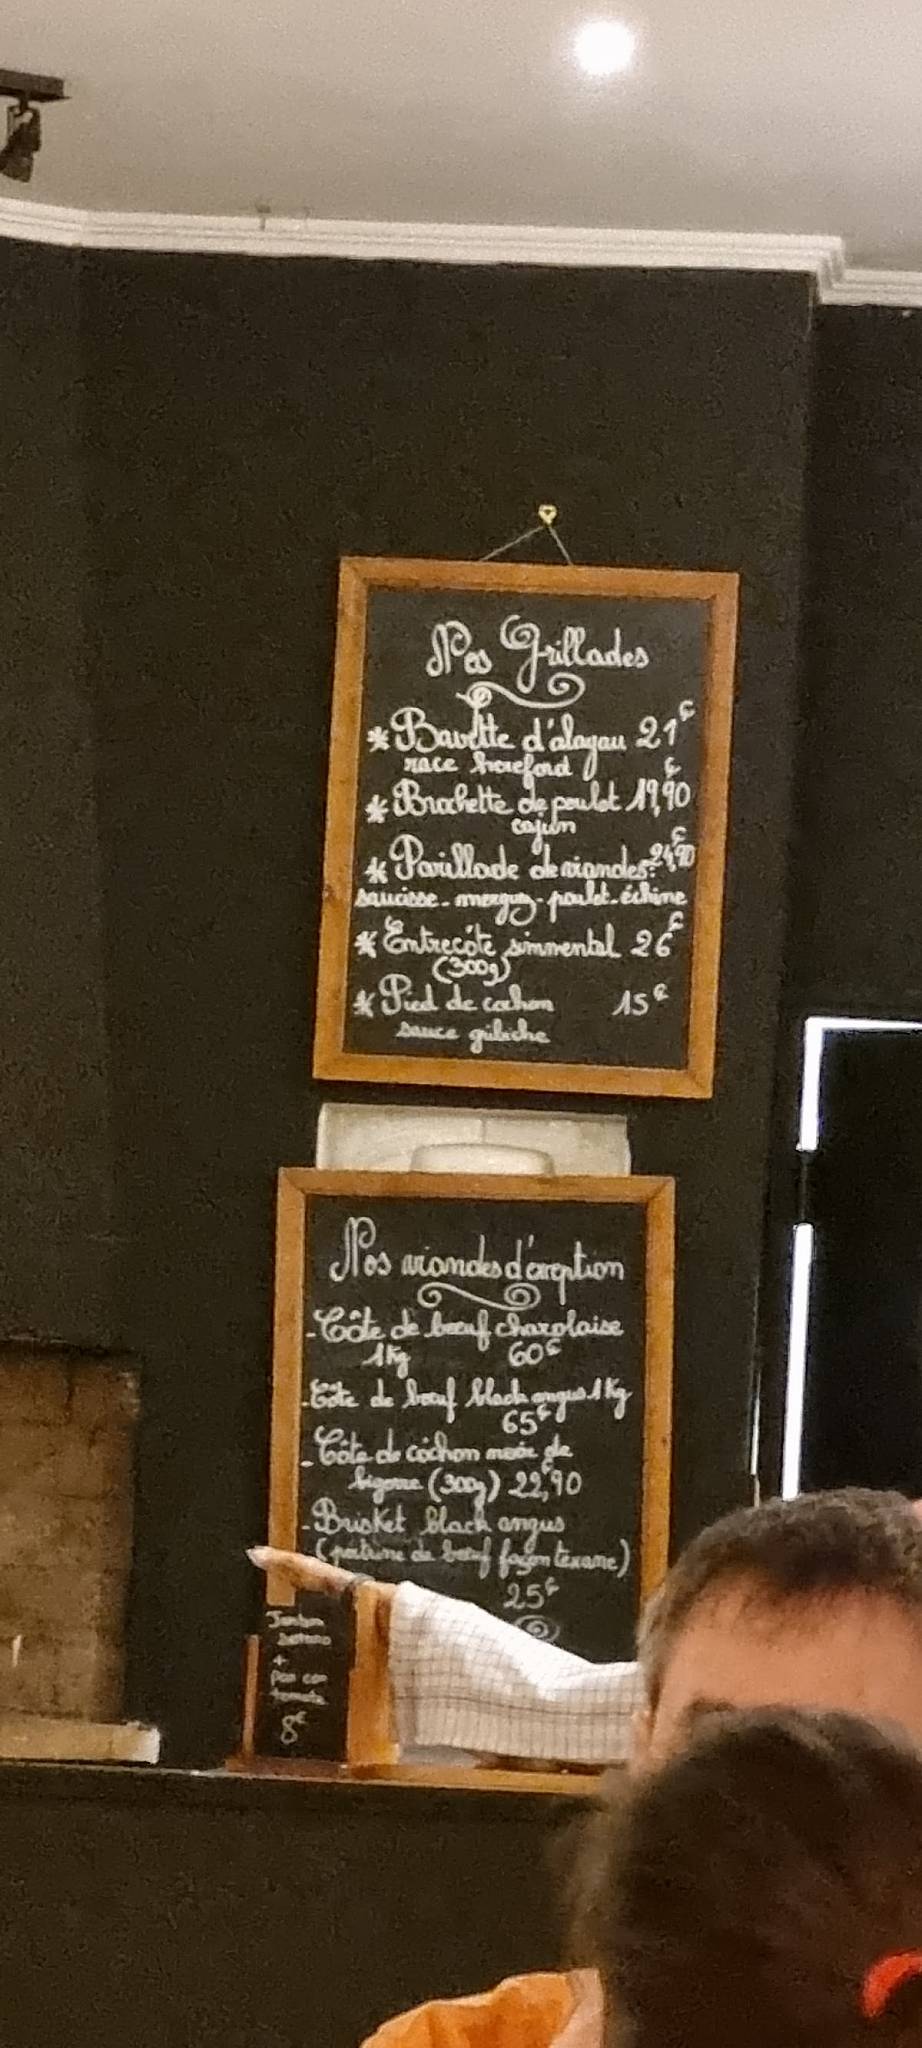 Nos Grillades
* Bavette d'aloyau 21€
race hereford
* Brochette de poulet 19,90€
cajun
* Parillade de viandes: 24,90€
saucisse - merguez - poulet - échine
* Entrecôte simmental 26€
(300g)
* Pied de cochon 15€
sauce gribiche
Nos viandes d'exeption
- Côte de bœuf charolaise
1Kg 60€
- Côte de bœuf black angus 1Kg
65€
- Côte de cochon noir de
bigorre (300g) 22,90€
- Brisket black angus
(poitrine de bœuf façon texane)
25€
Jambon
Serrano
+
Pan con
tomate
8€